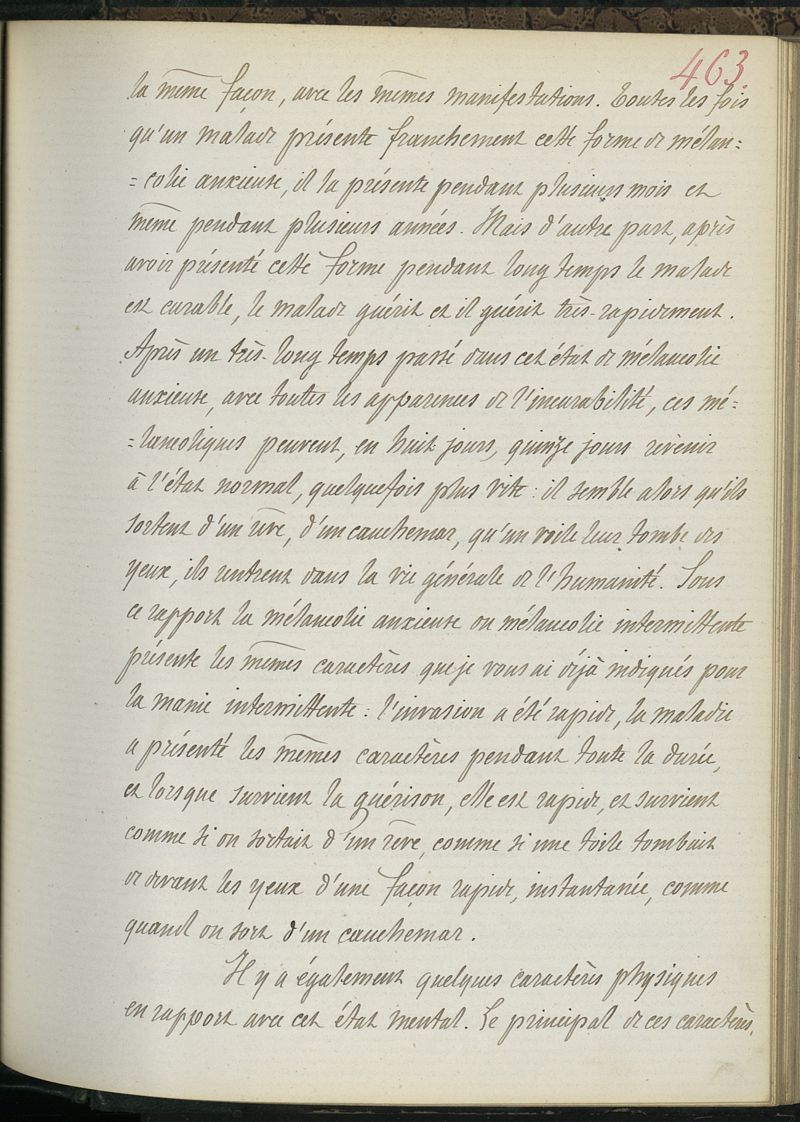 463.
la même façon, avec les mêmes manifestations. Toutes les fois
qu'un malade présente franchement cette forme de mélan=
=colie anxieuse, il la présente pendant plusieurs mois et
même pendant plusieurs années. Mais d'autre part, après
avoir présenté cette forme pendant longtemps le malade
est curable, le malade guérit et il guérit très-rapidement.
Après un très-long temps passé dans cet état de mélancolie
anxieuse, avec toutes les apparences de l'incurabilité, ces mé=
=lancoliques peuvent, en huit jours, quinze jours revenir
à l'état normal, quelquefois plus vite : il semble alors qu'ils
sortent d'un rêve, d'un cauchemar, qu'un voile leur tombe des
yeux, ils rentrent dans la vie générale de l'humanité. Sous
ce rapport la mélancolie anxieuse ou mélancolie intermittente
présente les mêmes caractères que je vous ai déjà indiqués pour
la manie intermittente : l'invasion a été rapide, la maladie
a présenté les mêmes caractères pendant toute la durée,
et lorsque survient la guérison, elle est rapide, et survient
comme si on sortait d'un rêve, comme si une toile tombait
de devant les yeux d'une façon rapide, instantanée, comme
quand on sort d'un cauchemar.
Il y a également quelques caractères physiques
en rapport avec cet état mental. Le principal de ces caractères,